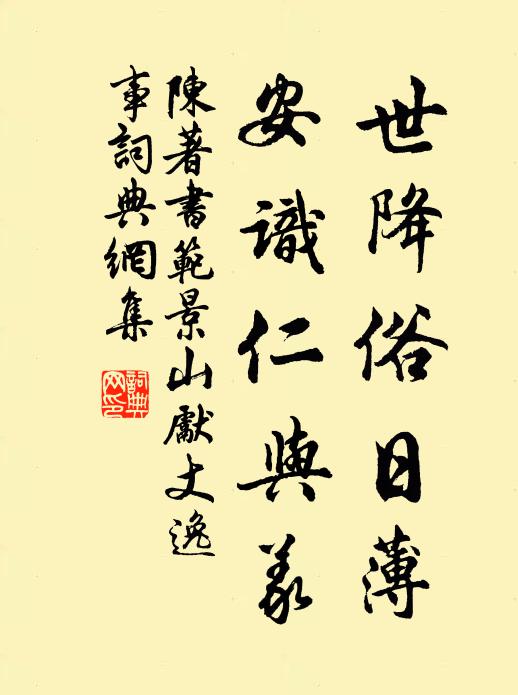 世降俗日薄
安識仁與義
陳著書範景山獻丈逸
事詞典網集
詞典
网印